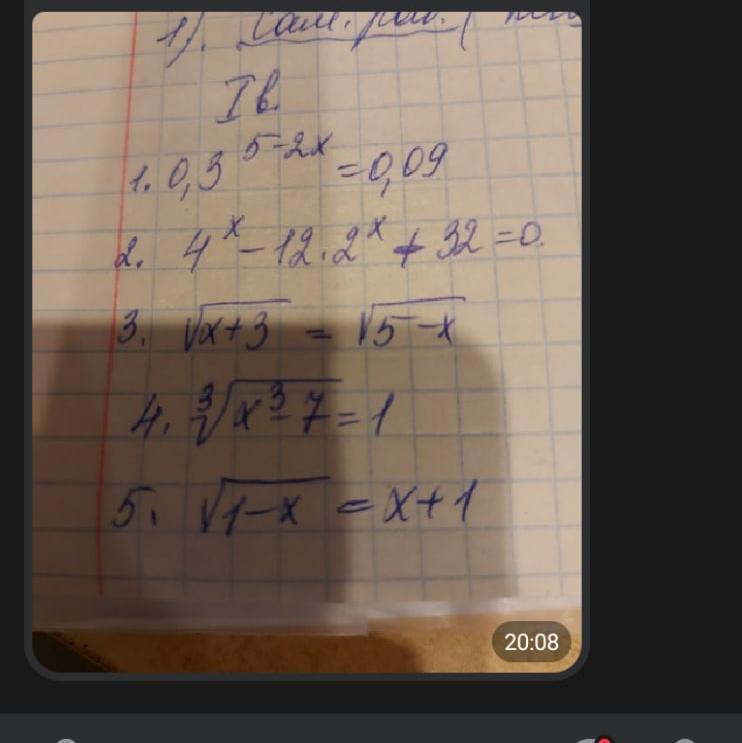 1). Сам. раб.
I в.
1. 0,3^{5-2x} = 0,09
2. 4^x - 12·2^x + 32 = 0.
3. √(x+3) = √(5-x)
4. ∛(x³-7) = 1
5. √(1-x) = x+1
20:08